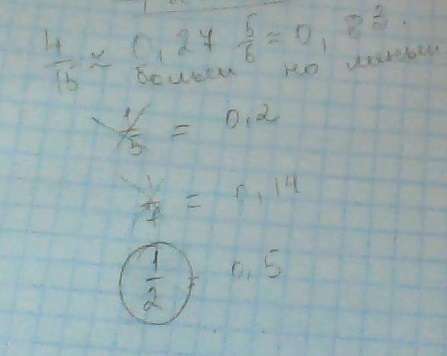 4/15 ≈ 0,27 5/6 = 0,83.
больши но меньши
1/5 = 0,2
1/7 = 0,14
1/2 = 0,5